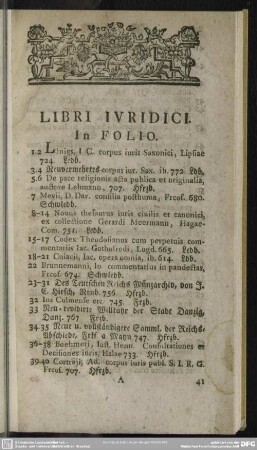 LIBRI IVRIDICI.
In FOLIO.
1.2 Lünigs, I C. corpus iuris Saxonici, Lipsiae
724. Ledb.
3.4 Neuvermehrtes corpus iur. Sax. ib. 772. Ldb.
5.6 De pace religionis acta publica et originalia,
auctore Lehmano, 707. Hfrzb.
7 Mevii, D. Dav. consilia posthuma, Frcof. 680.
Schwledb.
8-14 Novus thesaurus iuris civilis et canonici,
ex collectione Gerardi Meermann, Hagae-
Com. 751. Ledb.
15-17 Codex Theodosianus cum perpetuis com-
mentariis Iac. Gothofredi, Lugd. 665. Ledb.
18-21 Cuiacii, Iac. opera omnia, ib. 614. Ldb.
22 Brunnemanni, Io. commentarius in pandectas,
Frcof. 674. Schwledb.
23-31 Des Teutschen Reichs Münzarchiv, von J.
C. Hirsch, Nrnb. 756. Hfrzb.
32 Ius Culmense etc. 745. Frzb.
33 Neu-revidirte Willkühr der Stadt Danzig,
Danz. 767 Frzb.
34-35 Neue u. vollständigere Samml. der Reichs-
Abschiede, Frkf. a Mayn 747. Hfrzb.
36-38 Boehmeri, Iust. Henn. Consultationes et
Decisiones iuris, Halae 733. Hfrzb.
39-40 Cortreji, Ad. corpus iuris publ. S. I. R. G.
Frcof. 707. Hfrzb.
A 41